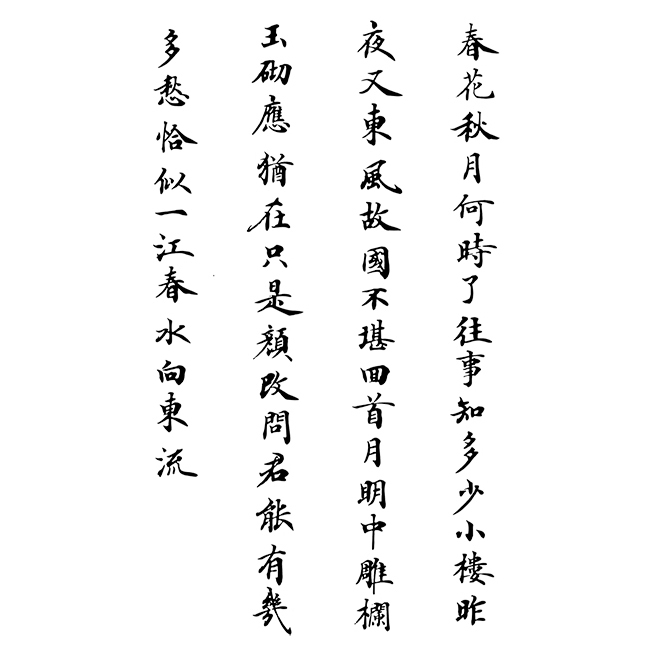 春花秋月何時了往事知多少小樓昨
夜又東風故國不堪回首月明中雕欄
玉砌應猶在只是顏改問君能有幾
多愁恰似一江春水向東流